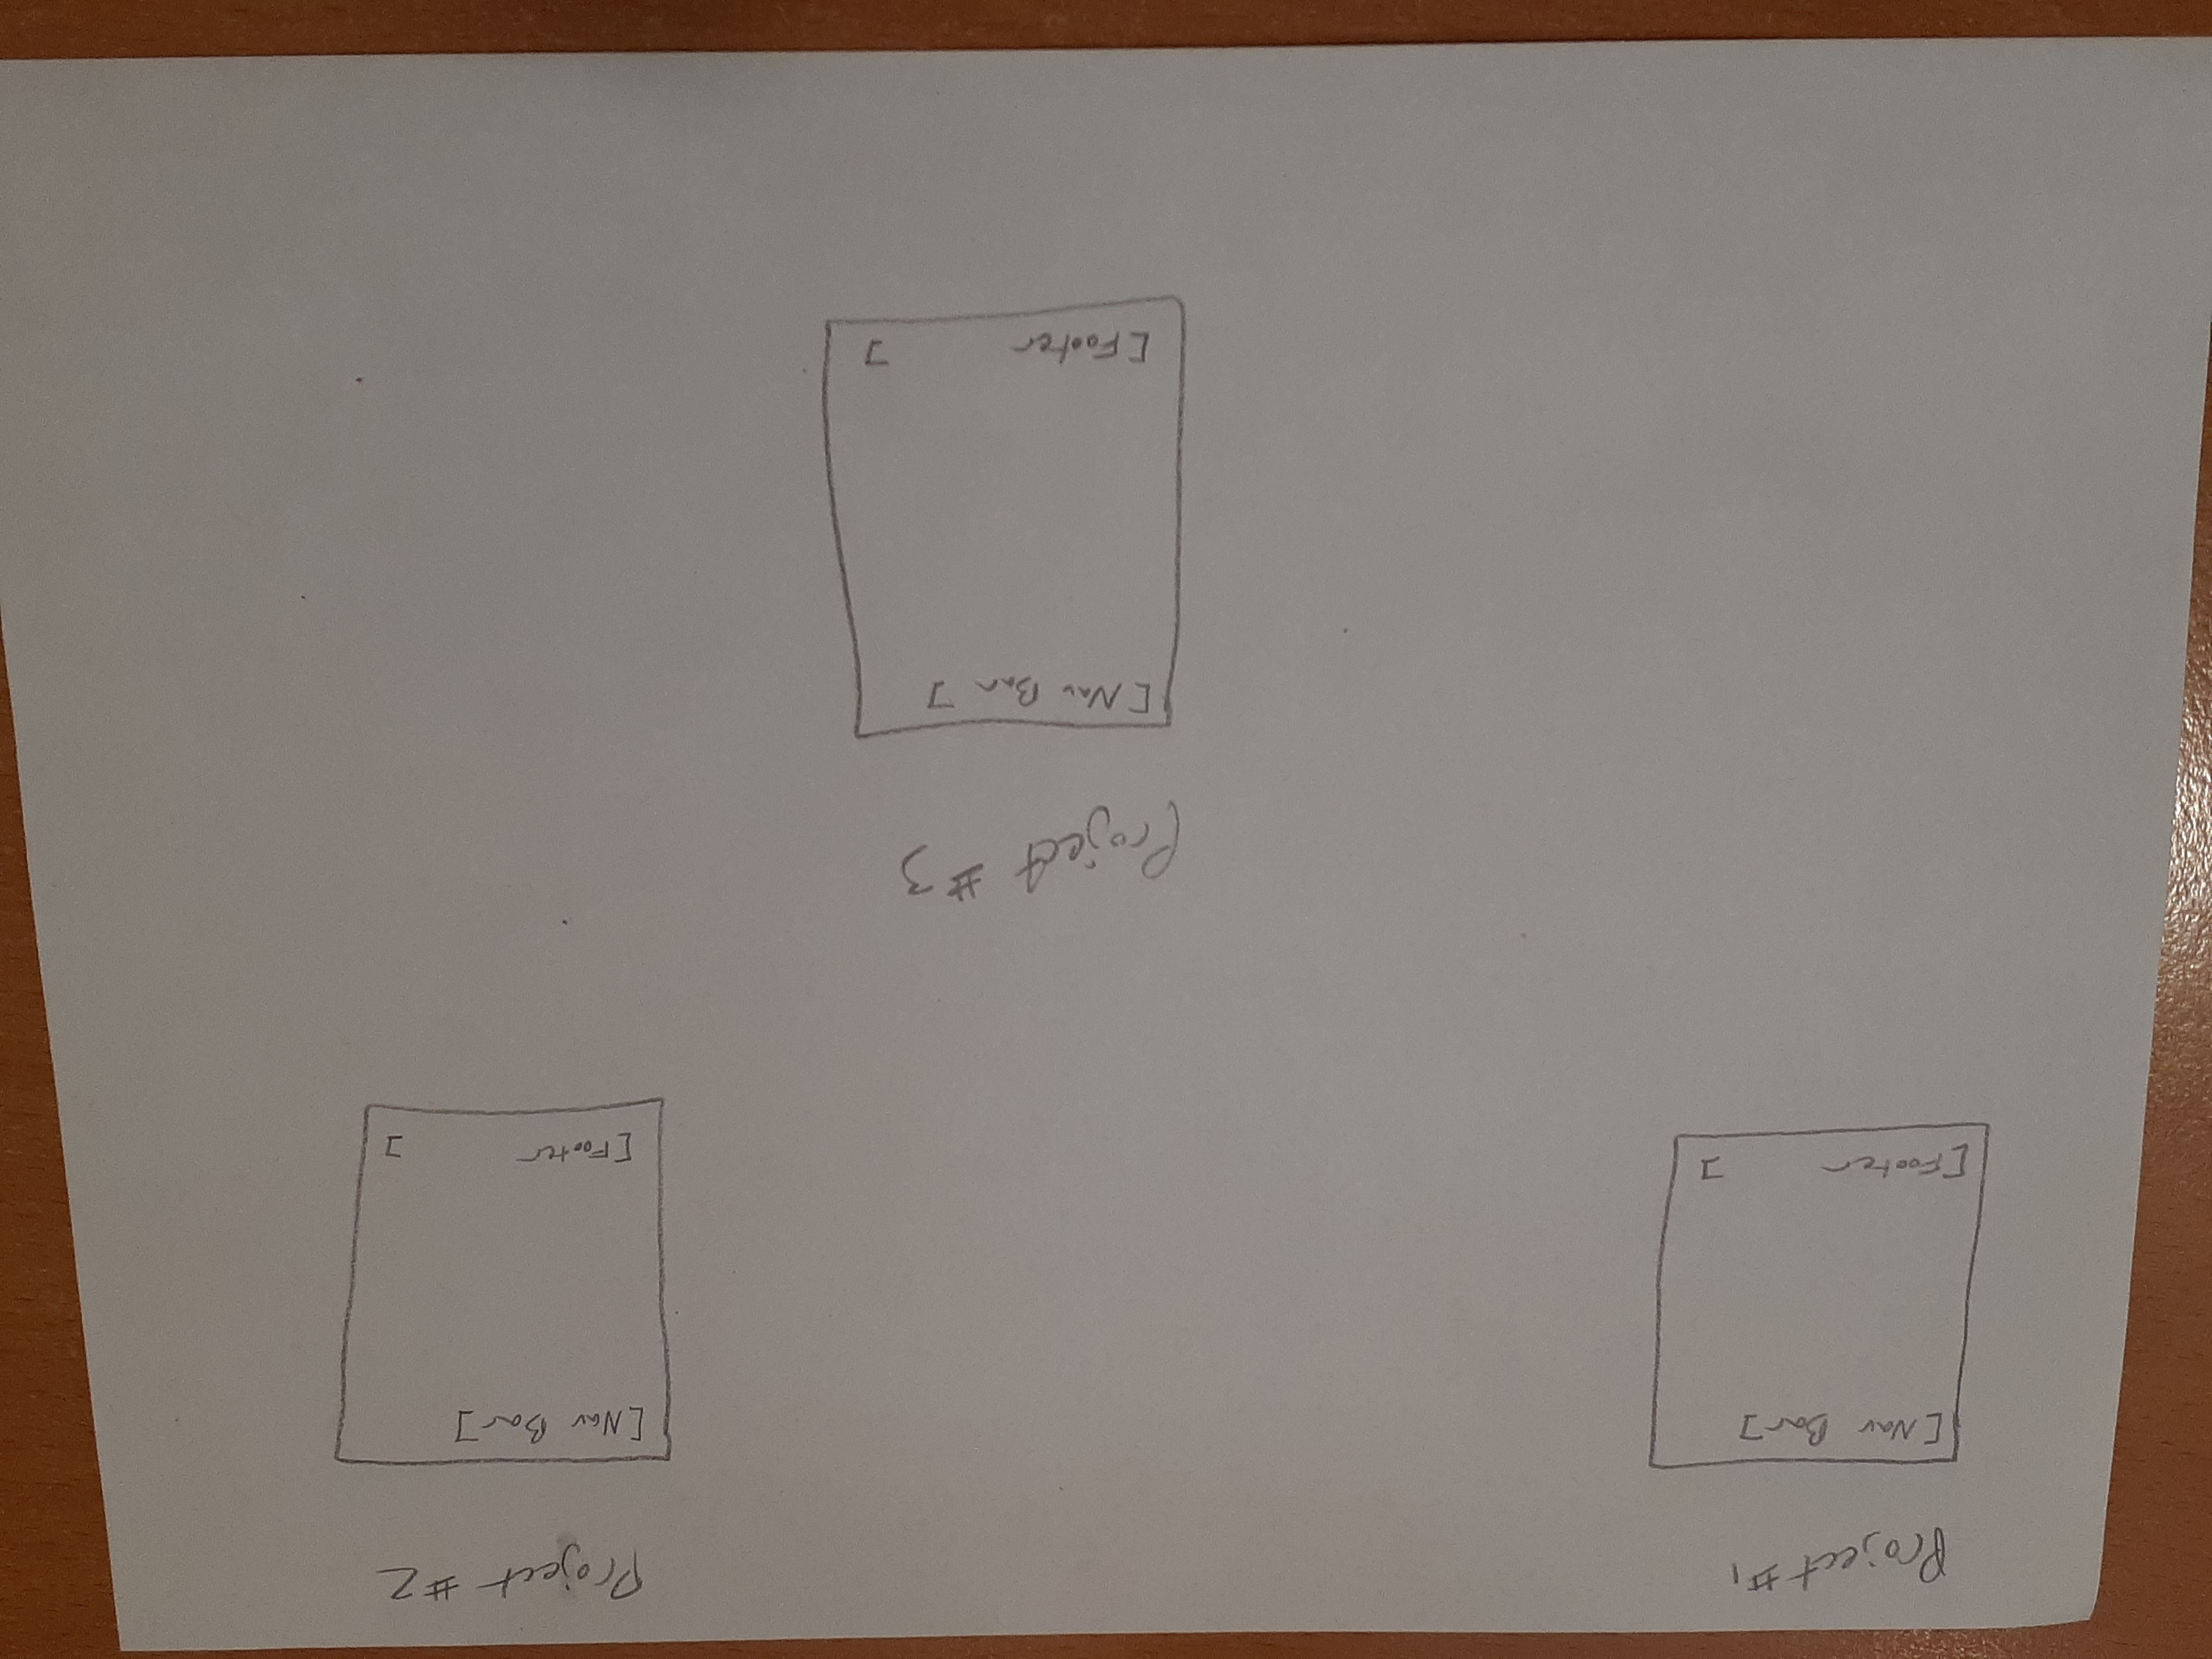 Project #1
[Nav Bar]
[Footer ]
Project #2
[Nav Bar]
[Footer ]
Project #3
[Nav Bar ]
[Footer ]